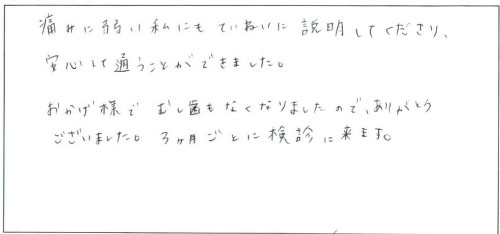 痛みに弱い私にもていねいに説明してくださり、
安心して通うことができました。
おかげ様でむし歯もなくなりましたので、ありがとう
ございました。3ヶ月ごとに検診に来ます。